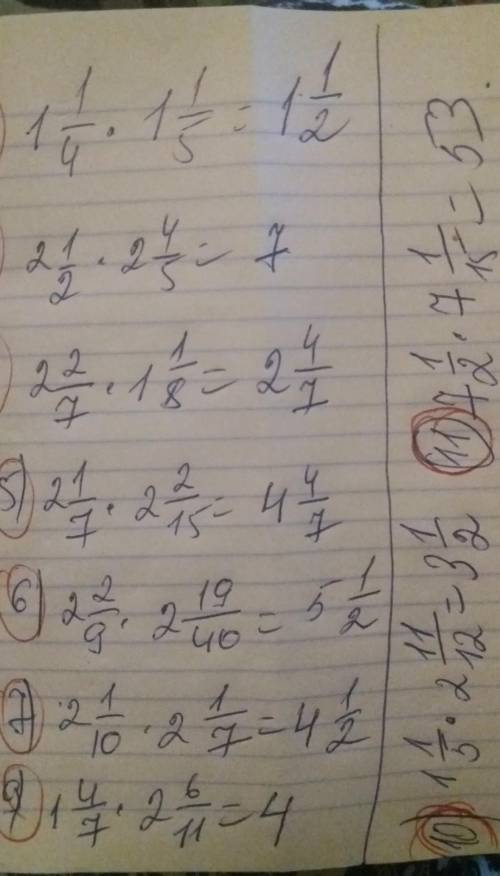 1 1/4 · 1 1/5 = 1 1/2
2 1/2 · 2 4/5 = 7
2 2/7 · 1 1/8 = 2 4/7
5) 2 1/7 · 2 2/15 = 4 4/7
6) 2 2/9 · 2 19/40 = 5 1/2
7) 2 1/10 · 2 1/7 = 4 1/2
9) 1 4/7 · 2 6/11 = 4
10) 1 1/5 · 2 11/12 = 3 1/2
11) 7 1/2 · 7 1/15 = 53